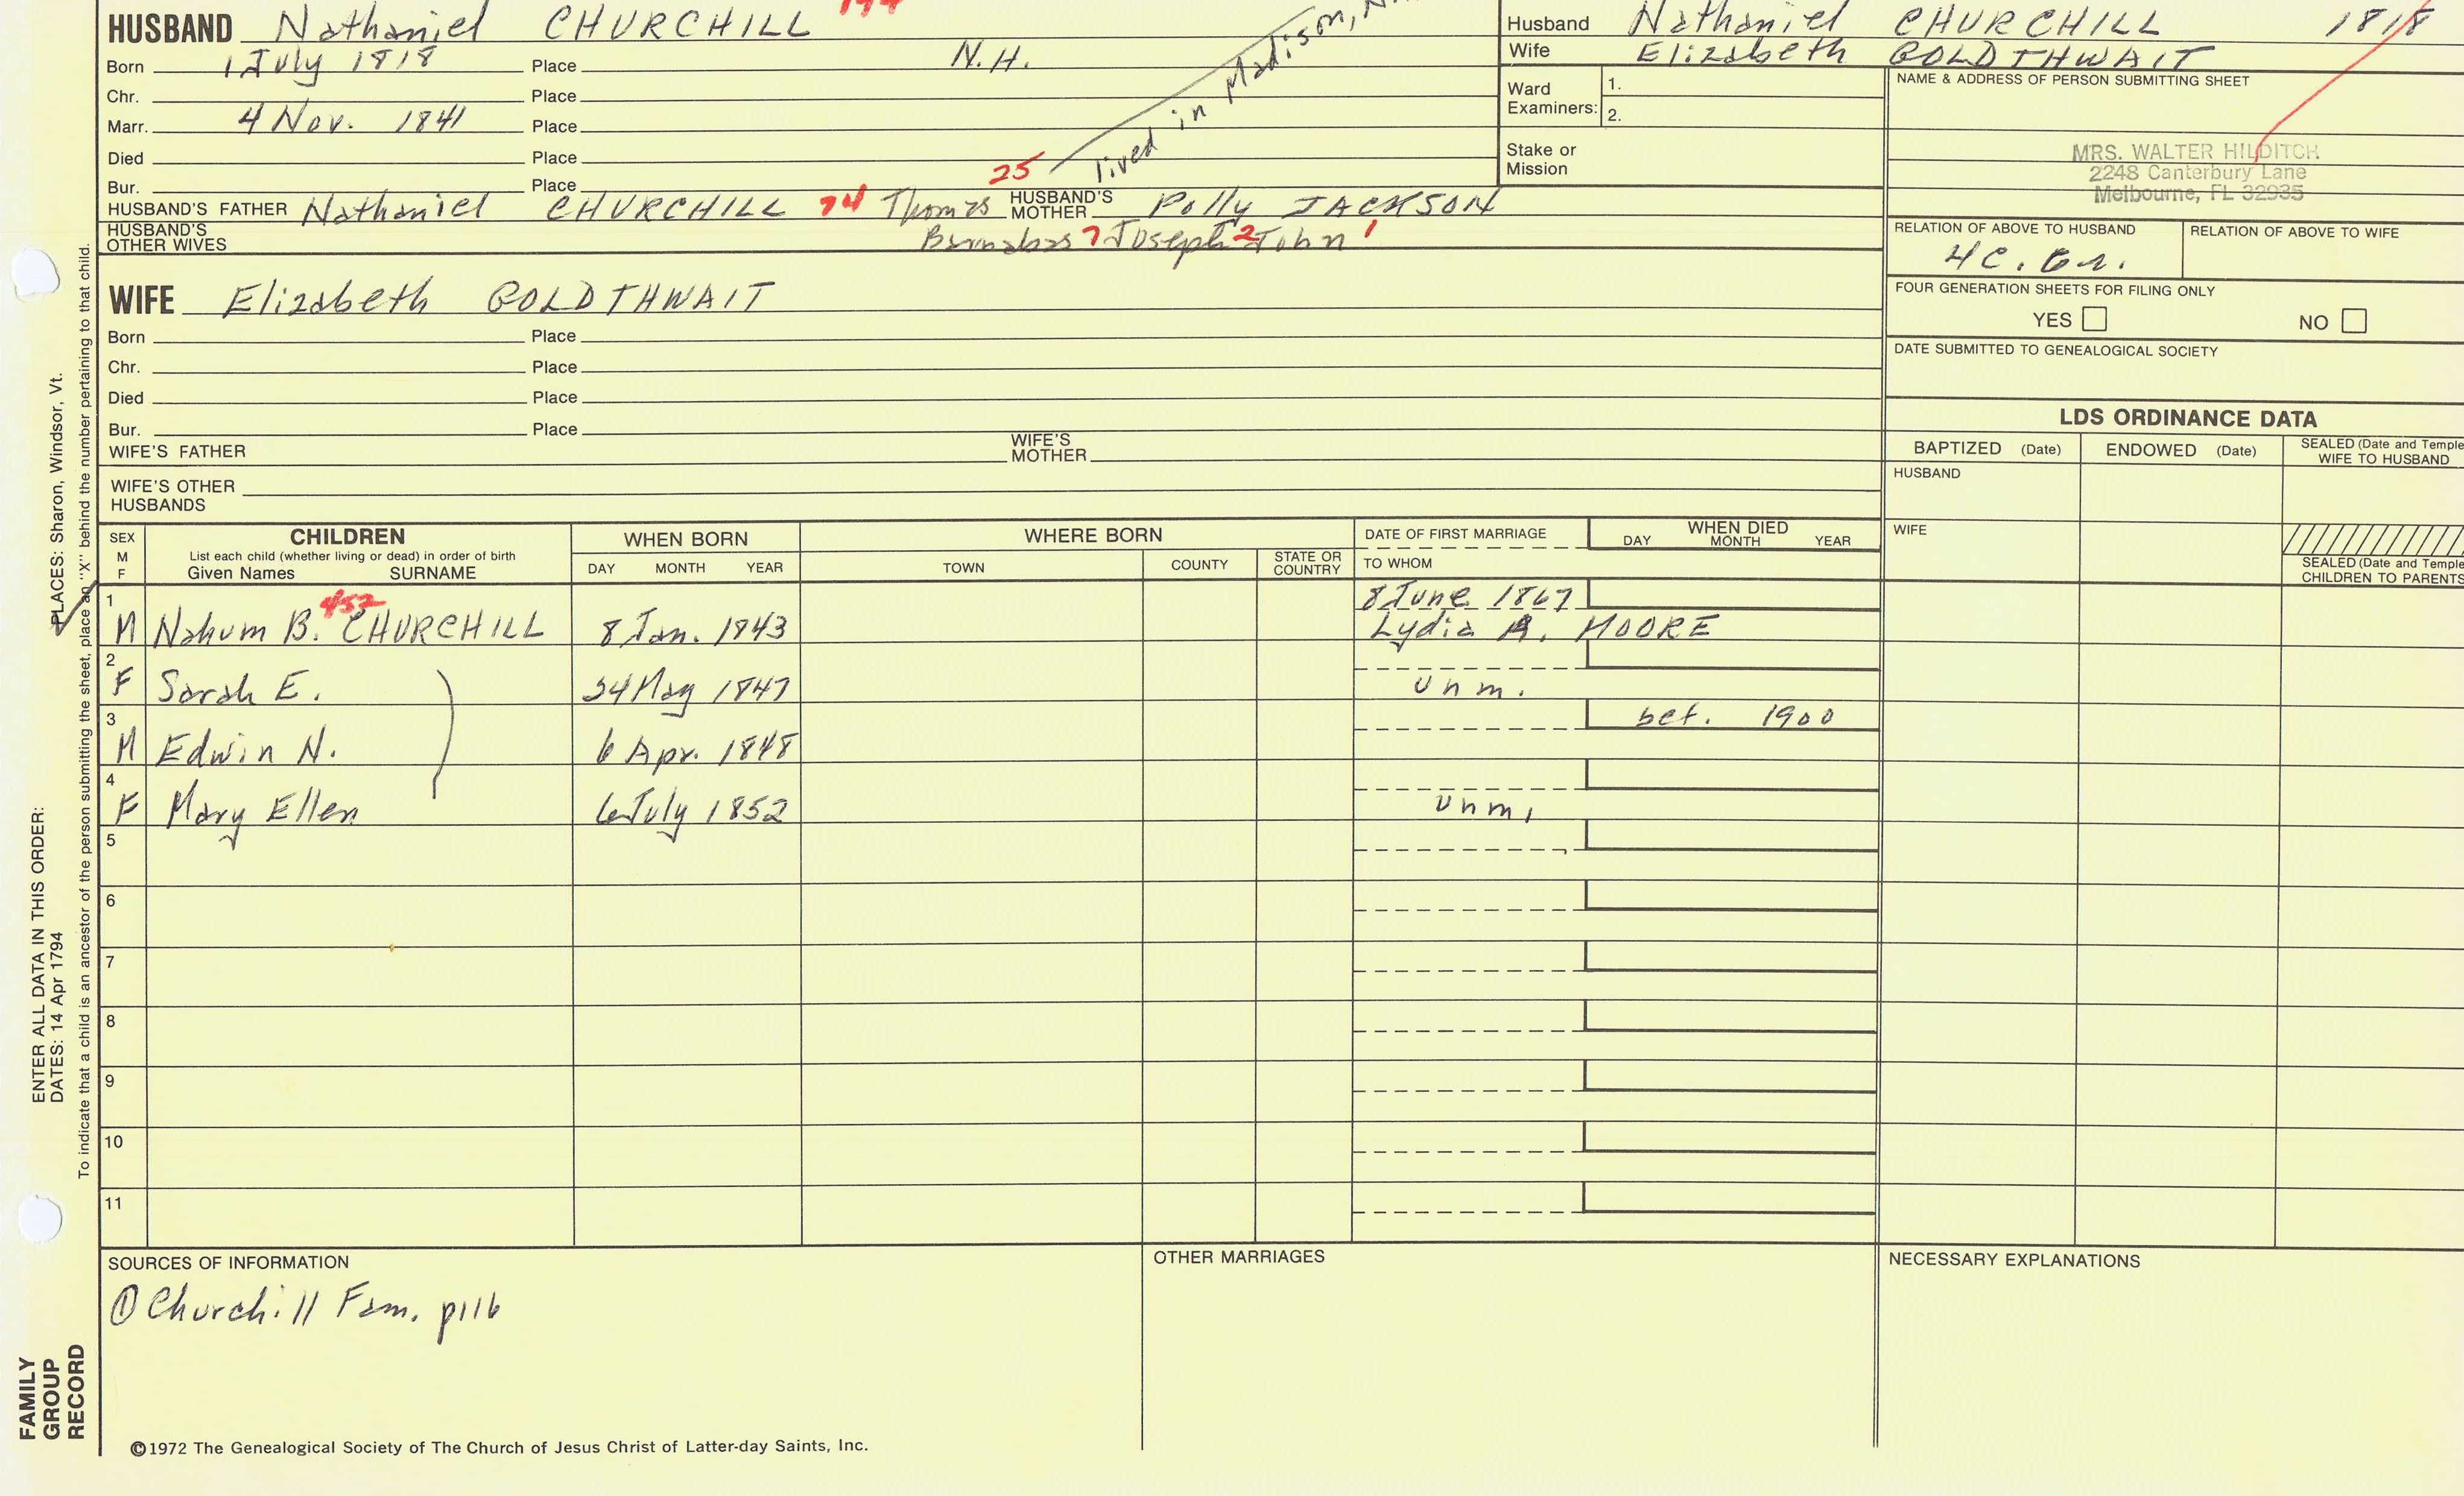 HUSBAND Nathaniel CHURCHILL
Born 1 July 1818 Place N.H.
Chr. Place
Marr. 4 Nov. 1841 Place
Died Place
Bur. Place
lived in Madison,
25
HUSBAND'S FATHER Nathaniel CHURCHILL 74 Thomas HUSBAND'S MOTHER Polly JACKSON
HUSBAND'S OTHER WIVES Barnabas 7 Joseph 2 John 1
Husband Nathaniel CHURCHILL 1818
Wife Elizabeth GOLDTHWAIT
Ward Examiners: 1.
2.
Stake or Mission
NAME & ADDRESS OF PERSON SUBMITTING SHEET
MRS. WALTER HILDITCH
2248 Canterbury Lane
Melbourne, FL 32935
RELATION OF ABOVE TO HUSBAND RELATION OF ABOVE TO WIFE
4C.
FOUR GENERATION SHEETS FOR FILING ONLY
YES NO
DATE SUBMITTED TO GENEALOGICAL SOCIETY
WIFE Elizabeth GOLDTHWAIT
Born Place
Chr. Place
Died Place
Bur. Place
WIFE'S FATHER WIFE'S MOTHER
WIFE'S OTHER HUSBANDS
LDS ORDINANCE DATA
BAPTIZED (Date) ENDOWED (Date) SEALED (Date and Temple
WIFE TO HUSBAND
HUSBAND
WIFE
SEALED (Date and Temple
CHILDREN TO PARENTS
SEX M F
CHILDREN
List each child (whether living or dead) in order of birth
Given Names SURNAME
WHEN BORN
DAY MONTH YEAR
WHERE BORN
TOWN COUNTY STATE OR COUNTRY
DATE OF FIRST MARRIAGE
TO WHOM
WHEN DIED
DAY MONTH YEAR
452
8 June 1867
1 M Nahum B. CHURCHILL 8 Jan. 1843 Lydia A. MOORE
2 F Sarah E. 24 May 1847 unm.
bef. 1900
3 M Edwin N. 6 Apr. 1848
4 F Mary Ellen 6 July 1852 unm.
5
6
7
8
9
10
11
SOURCES OF INFORMATION
① Churchill Fam. p116
OTHER MARRIAGES
NECESSARY EXPLANATIONS
©1972 The Genealogical Society of The Church of Jesus Christ of Latter-day Saints, Inc.
FAMILY GROUP RECORD
ENTER ALL DATA IN THIS ORDER:
DATES: 14 Apr 1794
PLACES: Sharon, Windsor, Vt.
To indicate that a child is an ancestor of the person submitting the sheet, place an "X" behind the number pertaining to that child.